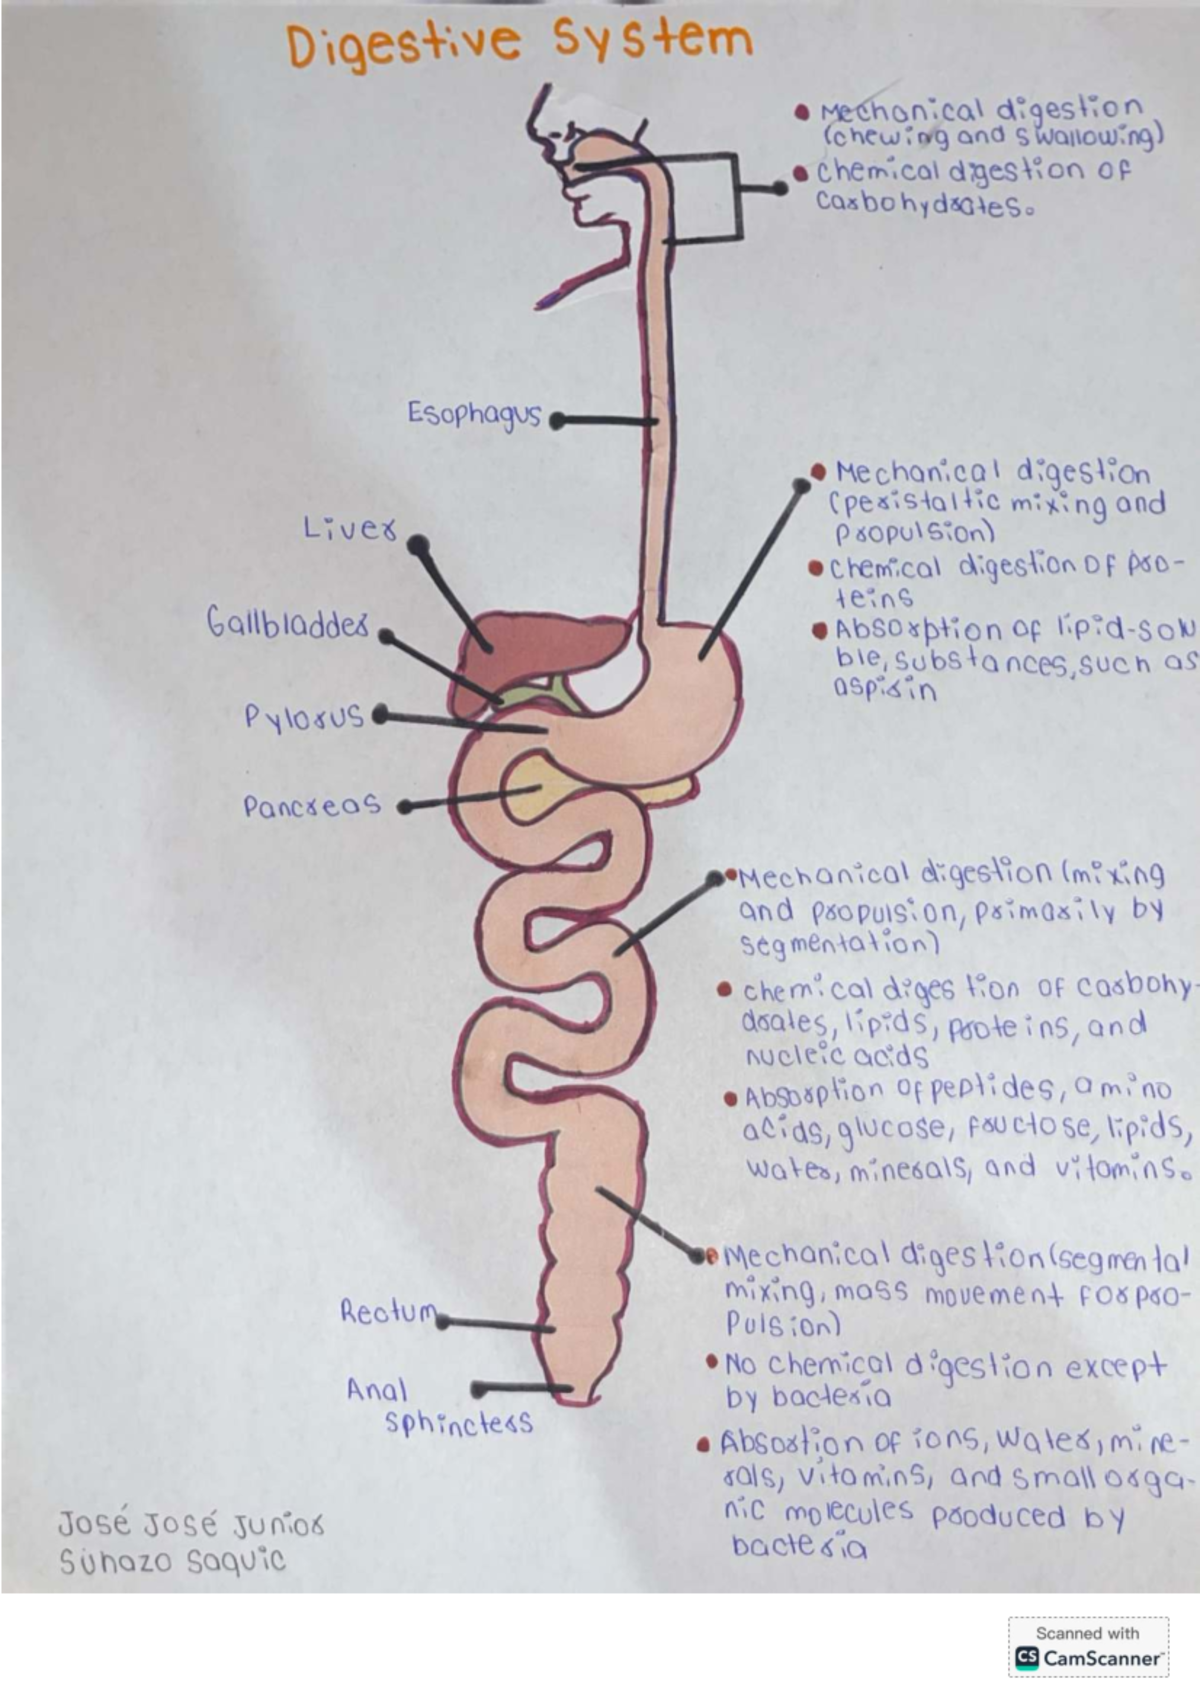 Digestive System
• Mechanical digestion
(chewing and swallowing)
• chemical digestion of
carbohydrates.
Esophagus
• Mechanical digestion
(peristaltic mixing and
propulsion)
• chemical digestion of pro-
teins
• Absorption of lipid-solu
ble, substances, such as
aspirin
Liver
Gallbladder
Pylorus
Pancreas
• Mechanical digestion (mixing
and propulsion, primarily by
segmentation)
• chemical digestion of carbohy-
drates, lipids, proteins, and
nucleic acids
• Absorption of peptides, amino
acids, glucose, fructose, lipids,
water, minerals, and vitamins.
• Mechanical digestion (segmental
mixing, mass movement for pro-
pulsion)
• No chemical digestion except
by bacteria
• Absortion of ions, water, mine-
rals, vitamins, and small orga-
nic molecules produced by
bacteria
Rectum
Anal
sphincters
José José Junior
Suhazo Saquic
Scanned with
CS CamScanner